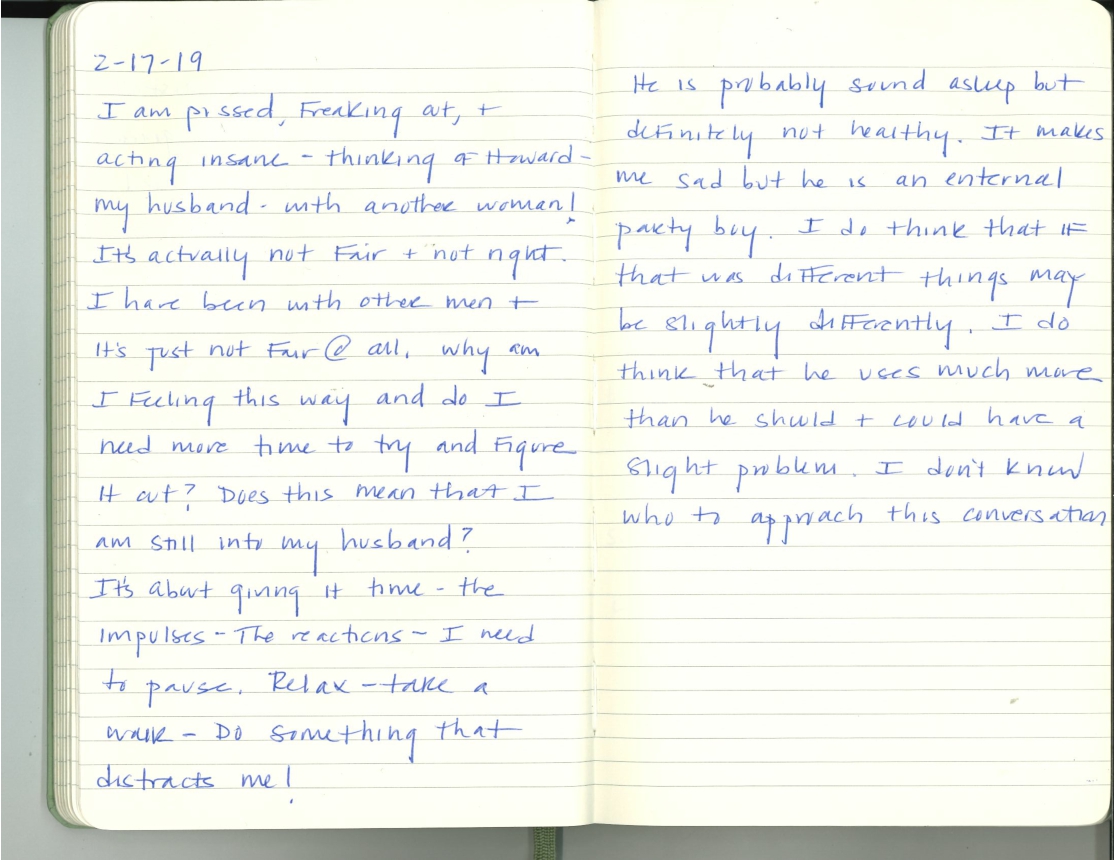 2-17-19
I am pissed, Freaking out, +
acting insane - thinking of Howard -
my husband - with another woman!
It's actually not Fair + not right.
I have been with other men +
It's just not Fair @ all. Why am
I Feeling this way and do I
need more time to try and Figure
It out? Does this mean that I
am still into my husband?
It's about giving it time - the
Impulses - The reactions - I need
to pause. Relax - take a
walk - Do something that
distracts me!
He is probably sound asleep but
definitely not healthy. It makes
me sad but he is an enternal
party boy. I do think that IF
that was different things may
be slightly differently. I do
think that he uses much more
than he should + could have a
slight problem. I don't know
who to approach this conversation